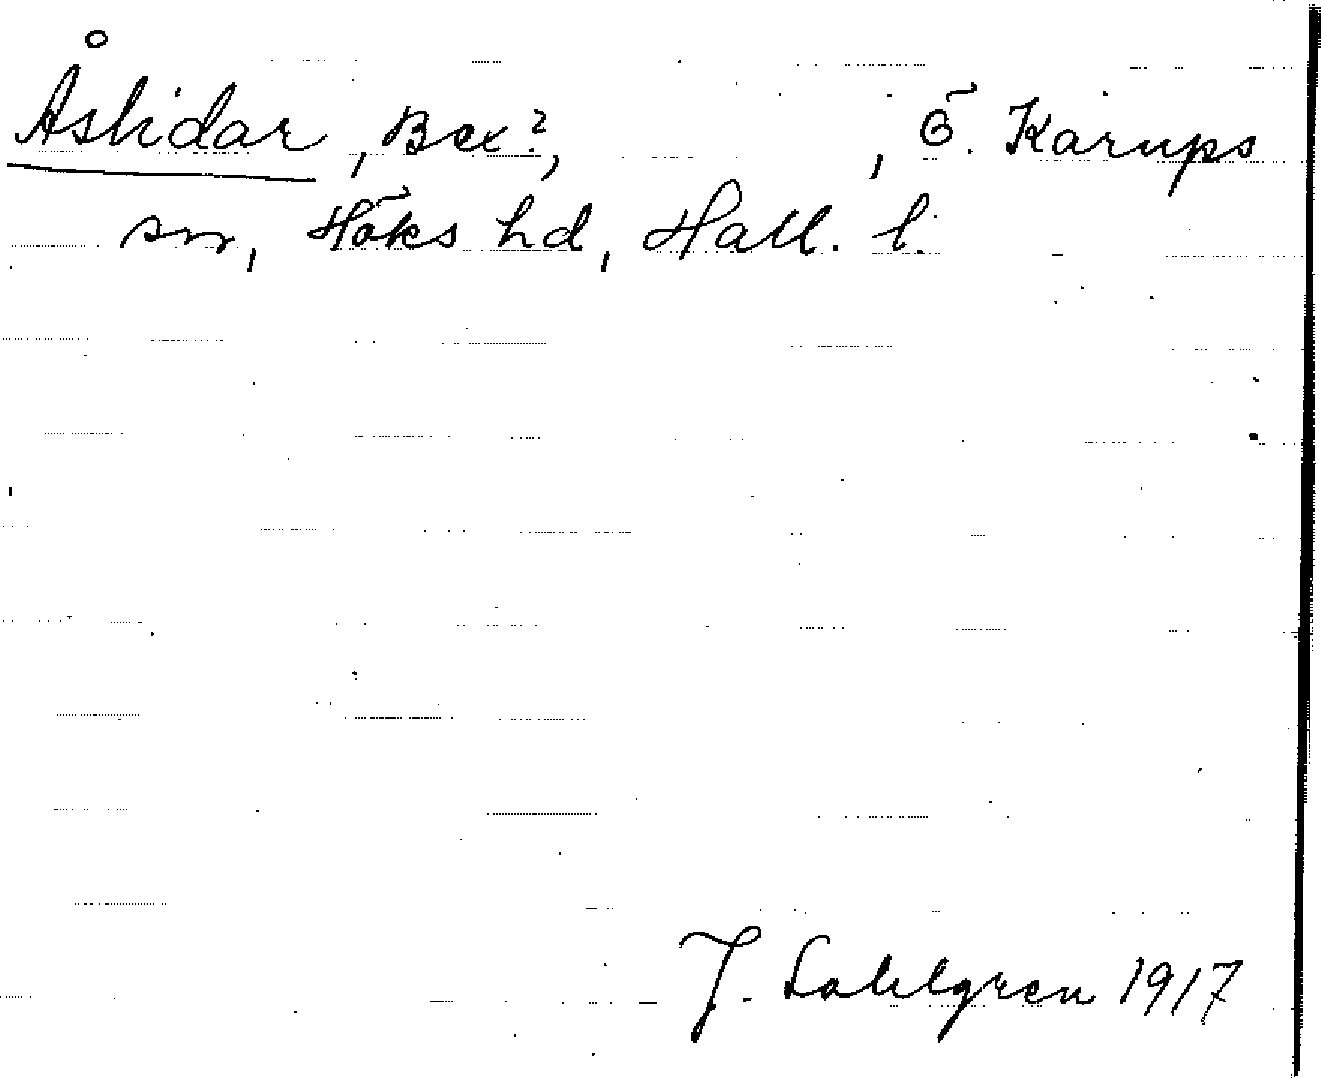 Åslidar, Bex?, , Ö. Karups
sn, Höks hd, Hall. l.
J. Sahlgren 1917